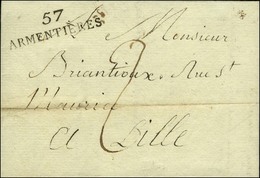 57
ARMENTIÈRES
Monsieur
Briantioux, Rue St
Maurice
a Lille
2